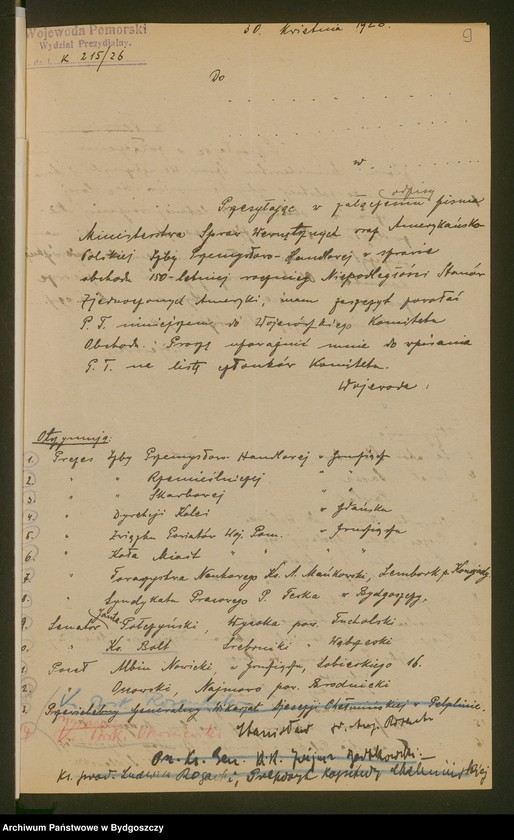 Wojewoda Pomorski
Wydział Prezydjalny.
K 215/26
30. kwietnia 1926.
9
Do
w
odpisy
Przesyłając w załączeniu pisma
Ministerstwa Spraw Wewnętrznych oraz Amerykańsko-
Polskiej Izby Przemysłowo-Handlowej w sprawie
obchodu 150-letniej rocznicy Niepodległości Stanów
Zjednoczonych Ameryki, mam zaszczyt powołać
P. T. niniejszem do Wojewódzkiego Komitetu
Obchodu. Proszę upoważnić mnie do wpisania
P. T. na listę członków Komitetu.
Wojewoda:
Otrzymują:
1. Prezes Izby Przemysłowo Handlowej w Grudziądzu
2. " " Rzemieślniczej " "
3. " " Skarbowej " "
4. " Dyrekcji Kolei w Gdańsku
5. " Związku Powiatów Woj. Pom. w Grudziądzu
6. " Koła Miast " " " "
7. " Towarzystwa Naukowego Ks. A. Mańkowski, Lembork p.
8. " Syndykatu Prasowego P. Teska w Bydgoszczy,
9. Senator Janta Połczyński, Wysoka pow. Tucholski
0. " Ks. Bolt Srebrniki " Wąbrzeski
1. Poseł Albin Nowicki w Grudziądzu, Sobieskiego 16.
2. " Ossowski, Najmowo pow. Brodnicki
Generalny Wikarjat Djecezji Chełmińskiej w Pelplinie.
Stanisław
Ks. Gen.
Ks. prał. Kapituły Chełmińskiej